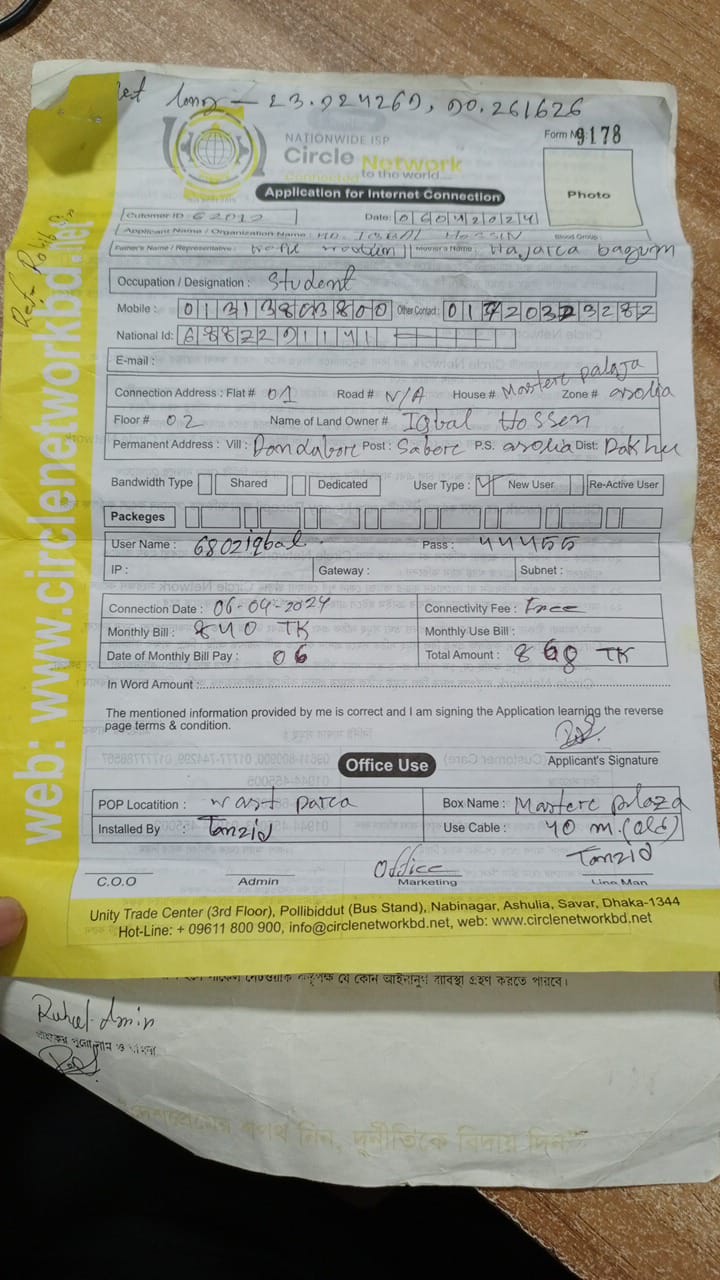 long - 23.924260, 90.261626
NATIONWIDE ISP
Form No 9178
Circle Network
connected to the world...
Application for Internet Connection
Photo
Cutomer ID 62012 Date: 06042024
Applicant Name / Organization Name : MD. IQBAL HOSSIN Blood Group :
Father's Name / Representative : Mother's Name : Hajarca bagum
Occupation / Designation : Student
Mobile : 01313803800 Other Contact : 01720323282
National Id: 6882291141
E-mail :
Connection Address : Flat # 01 Road # N/A House # Mastere palaja Zone # asolia
Floor # 02 Name of Land Owner # Iqbal Hossen
Permanent Address : Vill : Dandabore Post : Sabore P.S. asolia Dist: Dakha
Bandwidth Type Shared Dedicated User Type : New User Re-Active User
Packeges
User Name : 6802iqbal Pass : 44455
IP : Gateway : Subnet :
Connection Date : 06-04-2024 Connectivity Fee : Free
Monthly Bill : 840 TK Monthly Use Bill :
Date of Monthly Bill Pay : 06 Total Amount : TK
In Word Amount :
The mentioned information provided by me is correct and I am signing the Application learning the reverse
page terms & condition.
Applicant's Signature
Office Use
POP Locatition : wast parca Box Name : Mastere plaza
Installed By : Tanzid Use Cable : 40 m. (old)
Office Tanzid
C.O.O Admin Marketing Line Man
Unity Trade Center (3rd Floor), Pollibiddut (Bus Stand), Nabinagar, Ashulia, Savar, Dhaka-1344
Hot-Line: + 09611 800 900, info@circlenetworkbd.net, web: www.circlenetworkbd.net
web: www.circlenetworkbd.net
যে কোন আইনানুগ ব্যবস্থা গ্রহণ করতে পারবে।
Ruhul Amin
শপথ নিন, দুর্নীতিকে বিদায় দিন